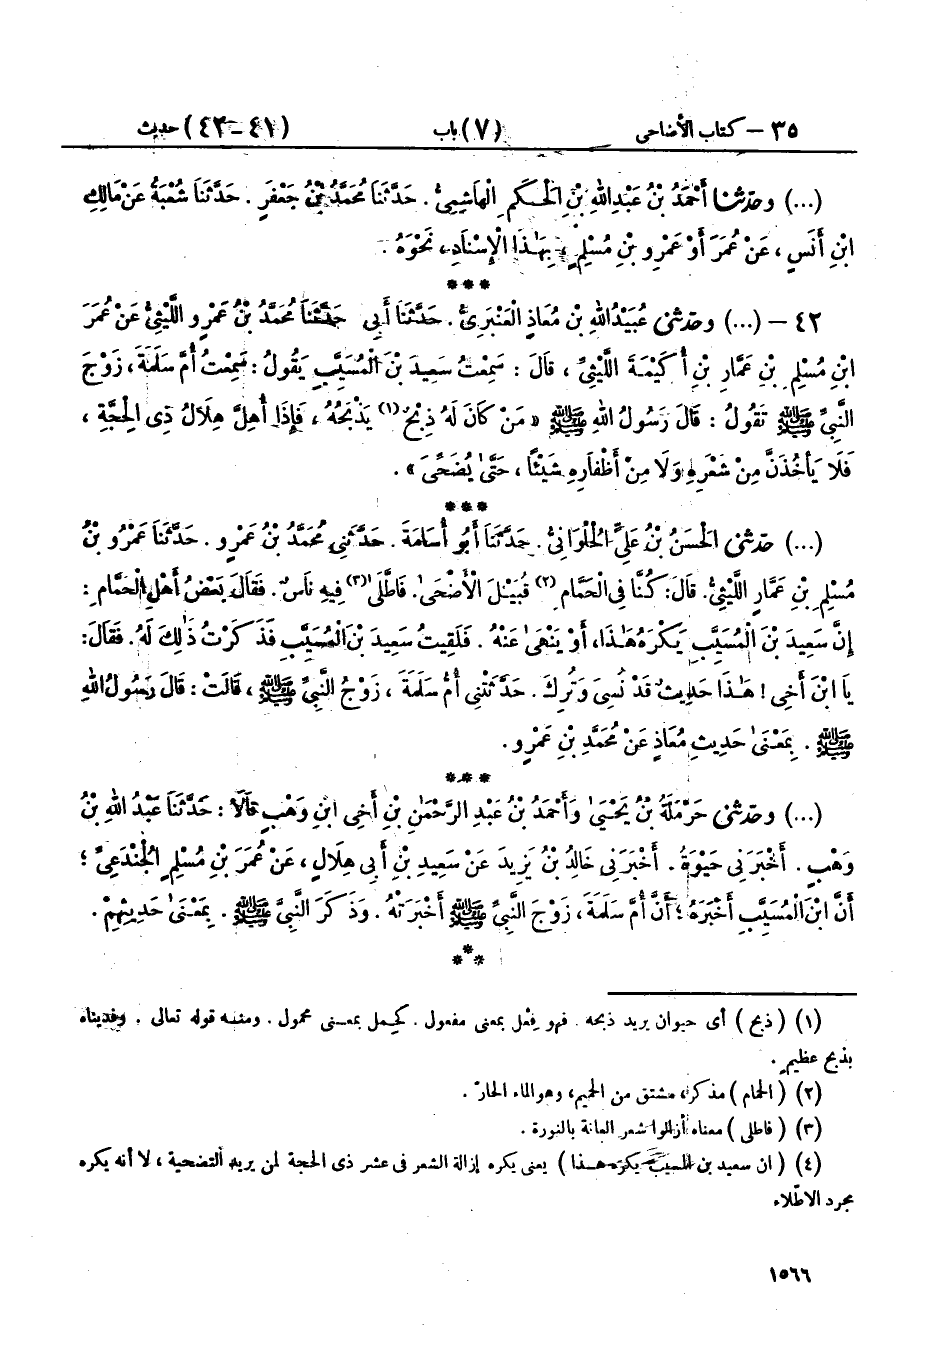 ٣٥ – كتاب الأضاحى (٧) باب (٤١–٤٢) حديث
(...) وحدثنا أَحْمَدُ بْنُ عَبْدِاللهِ بْنِ الْحَكَمِ الْهَاشِمِىُّ . حَدَّثَنَا مُحَمَّدُ بْنُ جَعْفَرٍ . حَدَّثَنَا شُعْبَةُ عَنْ مَالِكِ
ابْنِ أَنَسٍ ، عَنْ عُمَرَ أَوْ عَمْرِو بْنِ مُسْلِمٍ ، بِهَـٰذَا الْإِسْنَادِ ، نَحْوَهُ .
***
٤٢ – (...) وحدثنى عُبَيْدُاللهِ بْنُ مُعَاذٍ الْعَنْبَرِىُّ . حَدَّثَنَا أَبِى حَدَّثَنَا مُحَمَّدُ بْنُ عَمْرٍو اللَّيْثِىُّ عَنْ عُمَرَ
ابْنِ مُسْلِمِ بْنِ عَمَّارِ بْنِ أُكَيْمَةَ اللَّيْثِىِّ ، قَالَ : سَمِعْتُ سَعِيدَ بْنَ الْمُسَيَّبِ يَقُولُ : سَمِعْتُ أُمَّ سَلَمَةَ ، زَوْجَ
النَّبِىِّ ﷺ تَقُولُ : قَالَ رَسُولُ اللهِ ﷺ « مَنْ كَانَ لَهُ ذِبْحٌ (١) يَذْبَحُهُ ، فَإِذَا أُهِلَّ هِلَالُ ذِى الْحِجَّةِ ،
فَلَا يَأْخُذَنَّ مِنْ شَعْرِهِ وَلَا مِنْ أَظْفَارِهِ شَيْئًا ، حَتَّىٰ يُضَحِّىَ » .
***
(...) حدثنى الْحَسَنُ بْنُ عَلِىٍّ الْحُلْوَانِىُّ . حَدَّثَنَا أَبُو أُسَامَةَ . حَدَّثَنِى مُحَمَّدُ بْنُ عَمْرٍو . حَدَّثَنَا عَمْرُو بْنُ
مُسْلِمِ بْنِ عَمَّارٍ اللَّيْثِىُّ . قَالَ : كُنَّا فِى الْحَمَّامِ (٢) قُبَيْلَ الْأَضْحَىٰ . فَاطَّلَىٰ (٣) فِيهِ نَاسٌ . فَقَالَ بَعْضُ أَهْلِ الْحَمَّامِ :
إِنَّ سَعِيدَ بْنَ الْمُسَيَّبِ يَكْرَهُ هَـٰذَا ، أَوْ يَنْهَىٰ عَنْهُ . فَلَقِيتُ سَعِيدَ بْنَ الْمُسَيَّبِ فَذَكَرْتُ ذَٰلِكَ لَهُ . فَقَالَ :
يَا ابْنَ أَخِى ! هَـٰذَا حَدِيثٌ قَدْ نُسِىَ وَتُرِكَ . حَدَّثَتْنِى أُمُّ سَلَمَةَ ، زَوْجُ النَّبِىِّ ﷺ ، قَالَتْ : قَالَ رَسُولُ اللهِ
ﷺ . بِمَعْنَىٰ حَدِيثِ مُعَاذٍ عَنْ مُحَمَّدِ بْنِ عَمْرٍو .
***
(...) وحدثنى حَرْمَلَةُ بْنُ يَحْيَىٰ وَأَحْمَدُ بْنُ عَبْدِ الرَّحْمَـٰنِ بْنِ أَخِى ابْنِ وَهْبٍ قَالَا : حَدَّثَنَا عَبْدُ اللهِ بْنُ
وَهْبٍ . أَخْبَرَنِى حَيْوَةُ . أَخْبَرَنِى خَالِدُ بْنُ يَزِيدَ عَنْ سَعِيدِ بْنِ أَبِى هِلَالٍ ، عَنْ عُمَرَ بْنِ مُسْلِمٍ الْجُنْدَعِىِّ ؛
أَنَّ ابْنَ الْمُسَيَّبِ أَخْبَرَهُ ؛ أَنَّ أُمَّ سَلَمَةَ ، زَوْجَ النَّبِىِّ ﷺ أَخْبَرَتْهُ . وَذَكَرَ النَّبِىَّ ﷺ . بِمَعْنَىٰ حَدِيثِهِمْ .
***
(١) ( ذبح ) أى حيوان يريد ذبحه . فهو فِعْل بمعنى مفعول . كحمل بمعنى محمول . ومنه قوله تعالى . وفديناه
بذبح عظيم .
(٢) ( الحمام ) مذكر ، مشتق من الحميم ، وهو الماء الحارّ .
(٣) ( فاطلى ) معناه أزالوا شعر العانة بالنورة .
(٤) ( ان سعيد بن المسيب يكره هـذا ) يعنى يكره إزالة الشعر فى عشر ذى الحجة لمن يريد التضحية ، لا أنه يكره
مجرد الاطّلاء
١٥٦٦